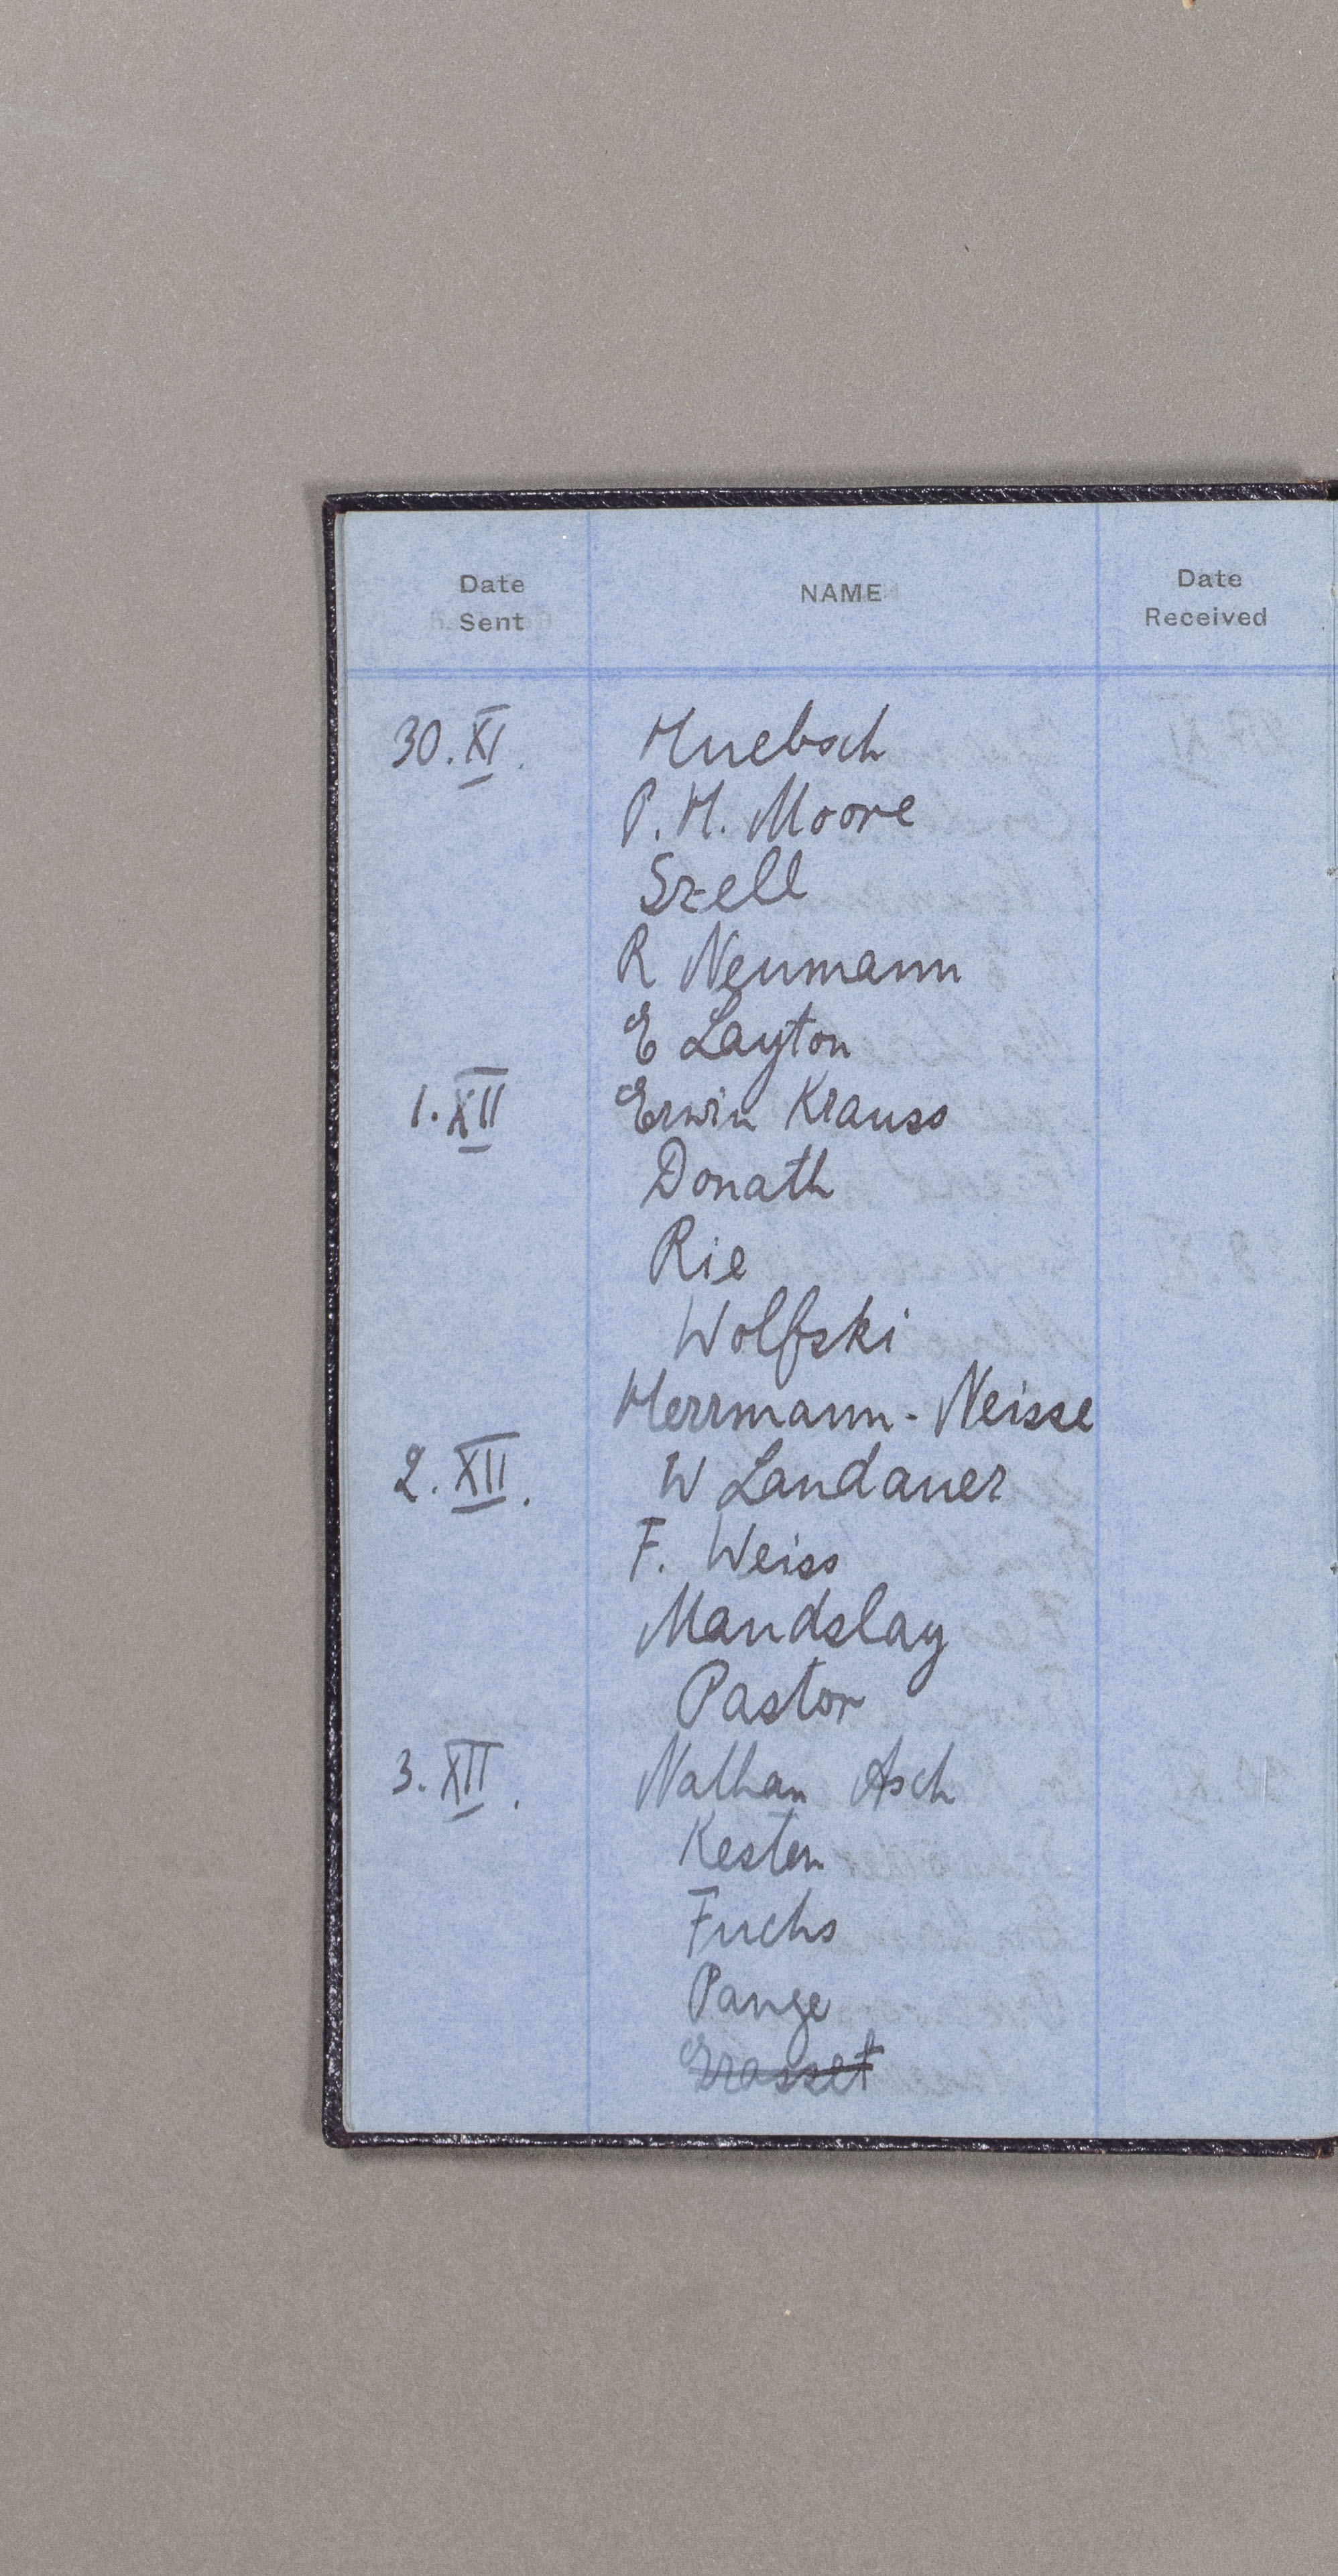 Date Sent NAME Date Received
30. XI. Huebsch
P. H. Moore
Szell
R Neumann
E Layton
1. XII Erwin Krauss
Donath
Rie
Wolfski
Herrmann-Neisse
2. XII. W Landauer
F. Weiss
Mandslay
Pastor
3. XII. Nathan Asch
Kesten
Fuchs
Pange
Grasset